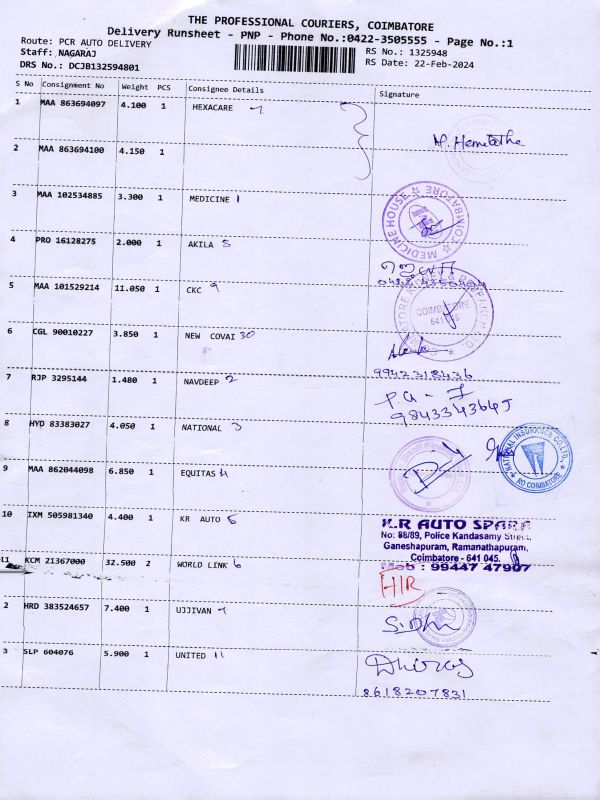 THE PROFESSIONAL COURIERS, COIMBATORE
Delivery Runsheet - PNP - Phone No.:0422-3505555 - Page No.:1
Route: PCR AUTO DELIVERY
RS No.: 1325948
Staff: NAGARAJ
RS Date: 22-Feb-2024
DRS No.: DCJB132594801
S No Consignment No Weight PCS Consignee Details Signature
1 MAA 863694097 4.100 1 HEXACARE
2 MAA 863694100 4.150 1
3 MAA 102534885 3.300 1 MEDICINE 1
MEDICINE HOUSE
COIMBATORE
4 PRO 16128275 2.000 1 AKILA 8
5 MAA 101529214 11.050 1 CKC 9
COIMBATORE
6 CGL 90010227 3.850 1 NEW COVAI 30
9942318436
7 RJP 3295144 1.480 1 NAVDEEP 2
8 HYD 83383027 4.050 1 NATIONAL 3
NATIONAL INSURANCE CO.LTD.
RO COIMBATORE
9 MAA 862044098 6.850 1 EQUITAS 4
10 IXM 505981340 4.400 1 KR AUTO 5
K.R AUTO SPARE
No: 88/89, Police Kandasamy Street,
Ganeshapuram, Ramanathapuram,
Coimbatore - 641 045.
Mob : 99447 47907
11 KCM 21367000 32.500 2 WORLD LINK 6
H/R
2 HRD 383524657 7.400 1 UJJIVAN 7
3 SLP 604076 5.900 1 UNITED 11
8618207831